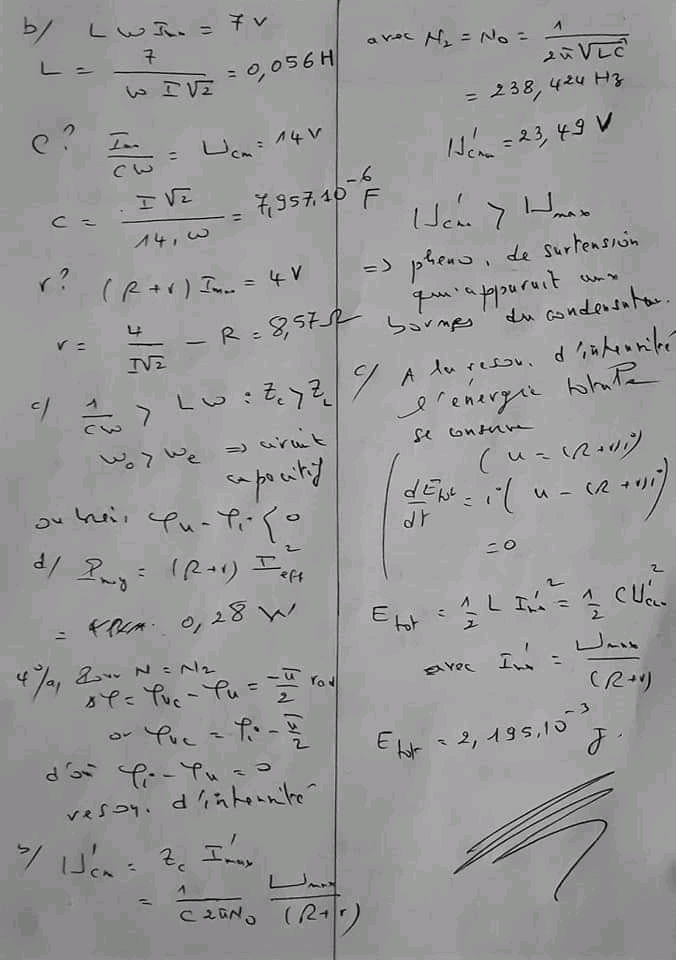 b/ L w Im = 7 V
L = 7 / (w I √2) = 0,056 H
C? Im / (C w) = Ucm = 14 V
C = I √2 / (14, w) = 7,957.10^-6 F
r? (R + r) Im = 4 V
r = 4 / (I√2) − R = 8,57 Ω
c/ 1 / (C w) > L w : Zc > ZL
wo > we ⇒ circuit
capacitif
ou bien, φu − φi < 0
d/ Pmoy = (R + r) I²eff
= 0,28 W
4°/a, Pour N = N2
Δφ = φuc − φu = −π/2 rad
or φuc = φi − π/2
d'où φi − φu = 0
reson. d'intensité
b/ U'cm = Zc I'max
= 1 / (C 2π No) Umax / (R + r)
avec N2 = No = 1 / (2π √LC)
= 238,424 Hz
U'cm = 23,49 V
U'cm > Umax
⇒ pheno. de surtension
qui appuruit aux
bornes du condensateur.
c/ A la reson. d'intensité
l'énergie totale
se conserve
( u = (R + r) i )
( dEtot / dt = i ( u − (R + r) i )
= 0
Etot = 1/2 L I'm² = 1/2 C U'cm²
avec I'm = Umax / (R + r)
Etot = 2,195.10^-3 J.